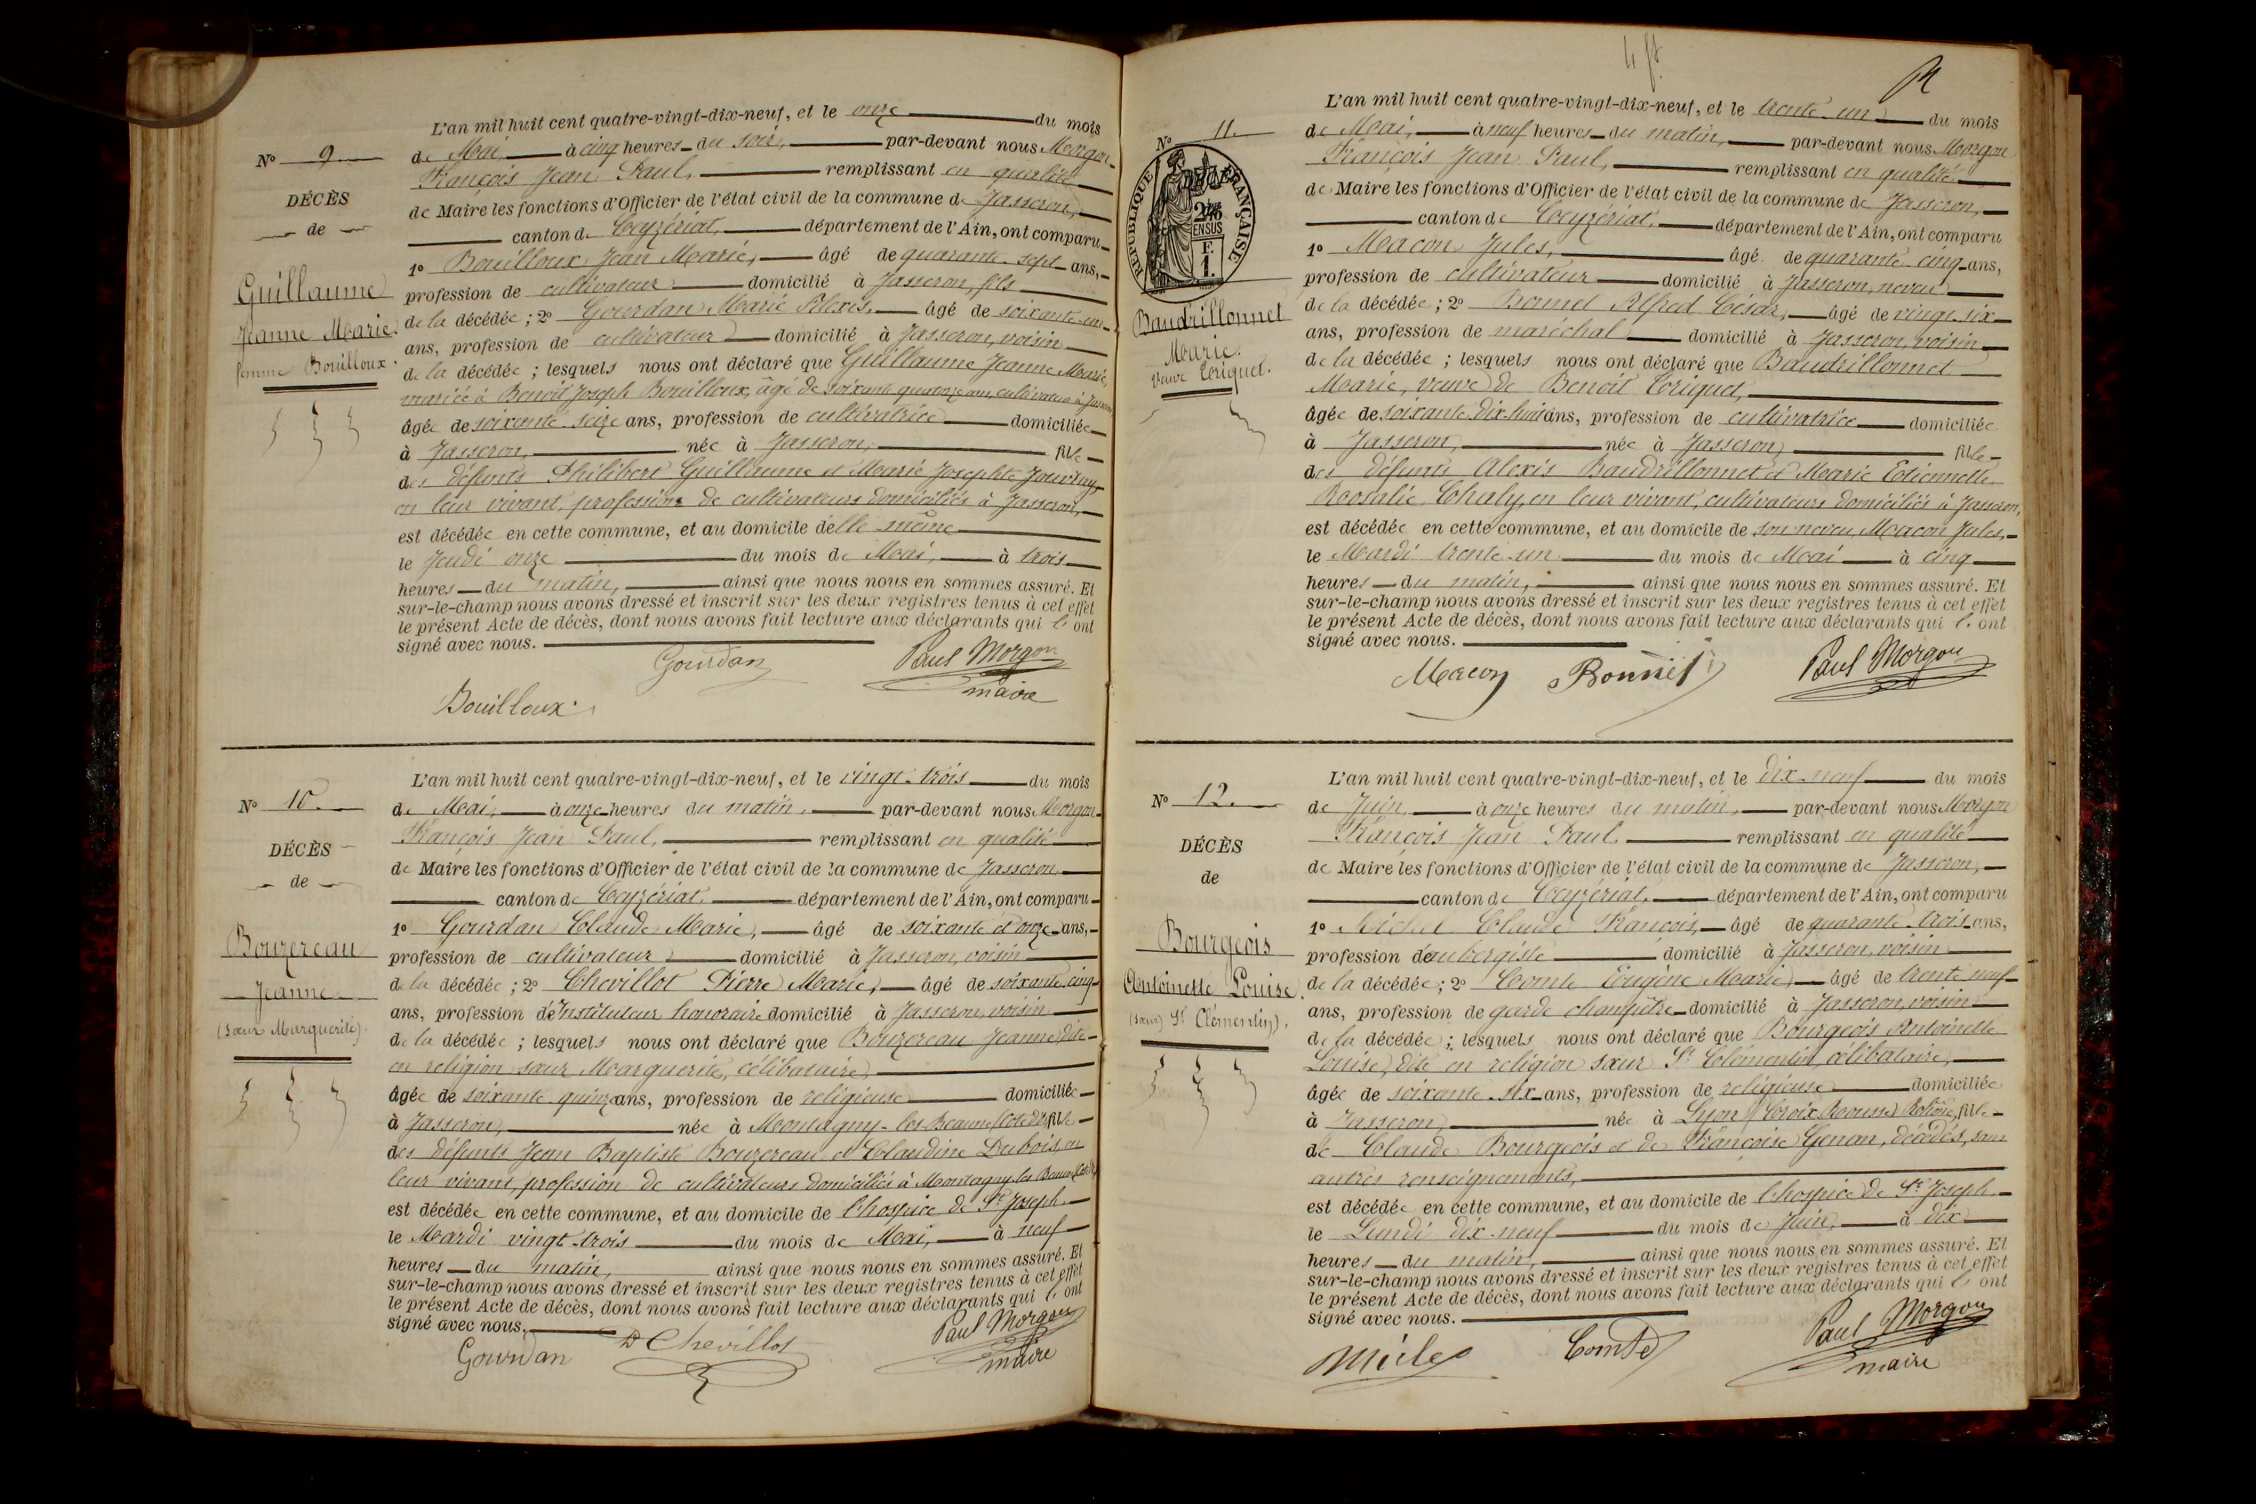 N° 9.
DÉCÈS
de
Guillaume
Jeanne Marie
femme Bouilloux.
L'an mil huit cent quatre-vingt-dix-neuf, et le onze du mois
de Mai, à cinq heures du soir, par-devant nous Morgon
François Jean Paul, remplissant en qualité
de Maire les fonctions d'Officier de l'état civil de la commune de Jasseron,
canton de Ceyzériat, département de l'Ain, ont comparu
1° Bouilloux Jean Marie, âgé de quarante-sept ans,
profession de cultivateur domicilié à Jasseron, fils
de la décédée ; 2° Gourdan Marie Alexis, âgé de soixante-un
ans, profession de cultivateur domicilié à Jasseron, voisin
de la décédée ; lesquels nous ont déclaré que Guillaume Jeanne Marie,
mariée à Benoit Joseph Bouilloux, âgé de soixante quatorze ans, cultivateur à Jasseron
âgée de soixante-seize ans, profession de cultivatrice domiciliée
à Jasseron, née à Jasseron, fille
des défunts Philibert Guillaume et Marie Josephte
en leur vivant, profession de cultivateurs domiciliés à Jasseron,
est décédée en cette commune, et au domicile d'elle-même
le Jeudi onze du mois de Mai, à trois
heures du matin, ainsi que nous nous en sommes assuré. Et
sur-le-champ nous avons dressé et inscrit sur les deux registres tenus à cet effet
le présent Acte de décès, dont nous avons fait lecture aux déclarants qui l' ont
signé avec nous.
Gourdan Paul Morgon
maire
Bouilloux
N° 10.
DÉCÈS
de
Bouzereau
Jeanne
(Sœur Marguerite).
L'an mil huit cent quatre-vingt-dix-neuf, et le vingt-trois du mois
de Mai, à onze heures du matin, par-devant nous Morgon
François Jean Paul, remplissant en qualité
de Maire les fonctions d'Officier de l'état civil de la commune de Jasseron
canton de Ceyzériat, département de l'Ain, ont comparu
1° Gourdan Claude Marie, âgé de soixante et onze ans,
profession de cultivateur domicilié à Jasseron, voisin
de la décédée ; 2° Chevillot Pierre Marie, âgé de soixante-cinq
ans, profession d'Instituteur honoraire domicilié à Jasseron, voisin
de la décédée ; lesquels nous ont déclaré que Bouzereau Jeanne dite
en religion sœur Marguerite, célibataire,
âgée de soixante-quinze ans, profession de religieuse domiciliée
à Jasseron, née à Montagny-les-Beaune (Côte d'Or) fille
des défunts Jean Baptiste Bouzereau et Claudine Dubois, en
leur vivant, profession de cultivateurs domiciliés à Montagny les Beaune (Côte d'Or)
est décédée en cette commune, et au domicile de l'hospice de St Joseph
le Mardi vingt-trois du mois de Mai, à neuf
heures du matin, ainsi que nous nous en sommes assuré. Et
sur-le-champ nous avons dressé et inscrit sur les deux registres tenus à cet effet
le présent Acte de décès, dont nous avons fait lecture aux déclarants qui l' ont
signé avec nous.
Gourdan Chevillot Paul Morgon
maire
N° 11.
RÉPUBLIQUE FRANÇAISE
EN SUS
F.
1.
Baudrillonnet
Marie.
Veuve Coriquet.
L'an mil huit cent quatre-vingt-dix-neuf, et le trente-un du mois
de Mai, à neuf heures du matin, par-devant nous Morgon
François Jean Paul, remplissant en qualité
de Maire les fonctions d'Officier de l'état civil de la commune de Jasseron,
canton de Ceyzériat, département de l'Ain, ont comparu
1° Macon Jules, âgé de quarante-cinq ans,
profession de cultivateur domicilié à Jasseron, neveu
de la décédée ; 2° Bonnet Alfred César, âgé de vingt-six
ans, profession de maréchal domicilié à Jasseron, voisin
de la décédée ; lesquels nous ont déclaré que Baudrillonnet
Marie, veuve de Benoît Coriquet,
âgée de soixante-dix-huit ans, profession de cultivatrice domiciliée
à Jasseron, née à Jasseron, fille
des défunts Alexis Baudrillonnet et Marie Etiennette
Rosalie Chaly, en leur vivant, cultivateurs domiciliés à Jasseron,
est décédée en cette commune, et au domicile de son neveu, Macon Jules,
le Mardi trente-un du mois de Mai à cinq
heures du matin, ainsi que nous nous en sommes assuré. Et
sur-le-champ nous avons dressé et inscrit sur les deux registres tenus à cet effet
le présent Acte de décès, dont nous avons fait lecture aux déclarants qui l' ont
signé avec nous.
Macon Bonnet Paul Morgon
N° 12.
DÉCÈS
de
Bourgeois
Antoinette Louise.
(sœur St Clémentin).
L'an mil huit cent quatre-vingt-dix-neuf, et le dix-neuf du mois
de Juin, à onze heures du matin, par-devant nous Morgon
François Jean Paul, remplissant en qualité
de Maire les fonctions d'Officier de l'état civil de la commune de Jasseron,
canton de Ceyzériat, département de l'Ain, ont comparu
1° Michel Claude François, âgé de quarante-trois ans,
profession d'aubergiste domicilié à Jasseron, voisin
de la décédée ; 2° Comte Eugène Marie, âgé de trente-neuf
ans, profession de garde champêtre domicilié à Jasseron, voisin
de la décédée ; lesquels nous ont déclaré que Bourgeois Antoinette
Louise, dite en religion sœur St Clémentin, célibataire,
âgée de soixante-six ans, profession de religieuse domiciliée
à Jasseron, née à Lyon (Croix Rousse) Rhône, fille
de Claude Bourgeois et de Françoise Genon, décédés, sans
autres renseignements,
est décédée en cette commune, et au domicile de l'hospice de St Joseph
le Lundi dix-neuf du mois de Juin, à dix
heures du matin, ainsi que nous nous en sommes assuré. Et
sur-le-champ nous avons dressé et inscrit sur les deux registres tenus à cet effet
le présent Acte de décès, dont nous avons fait lecture aux déclarants qui l' ont
signé avec nous.
Comte Paul Morgon
maire